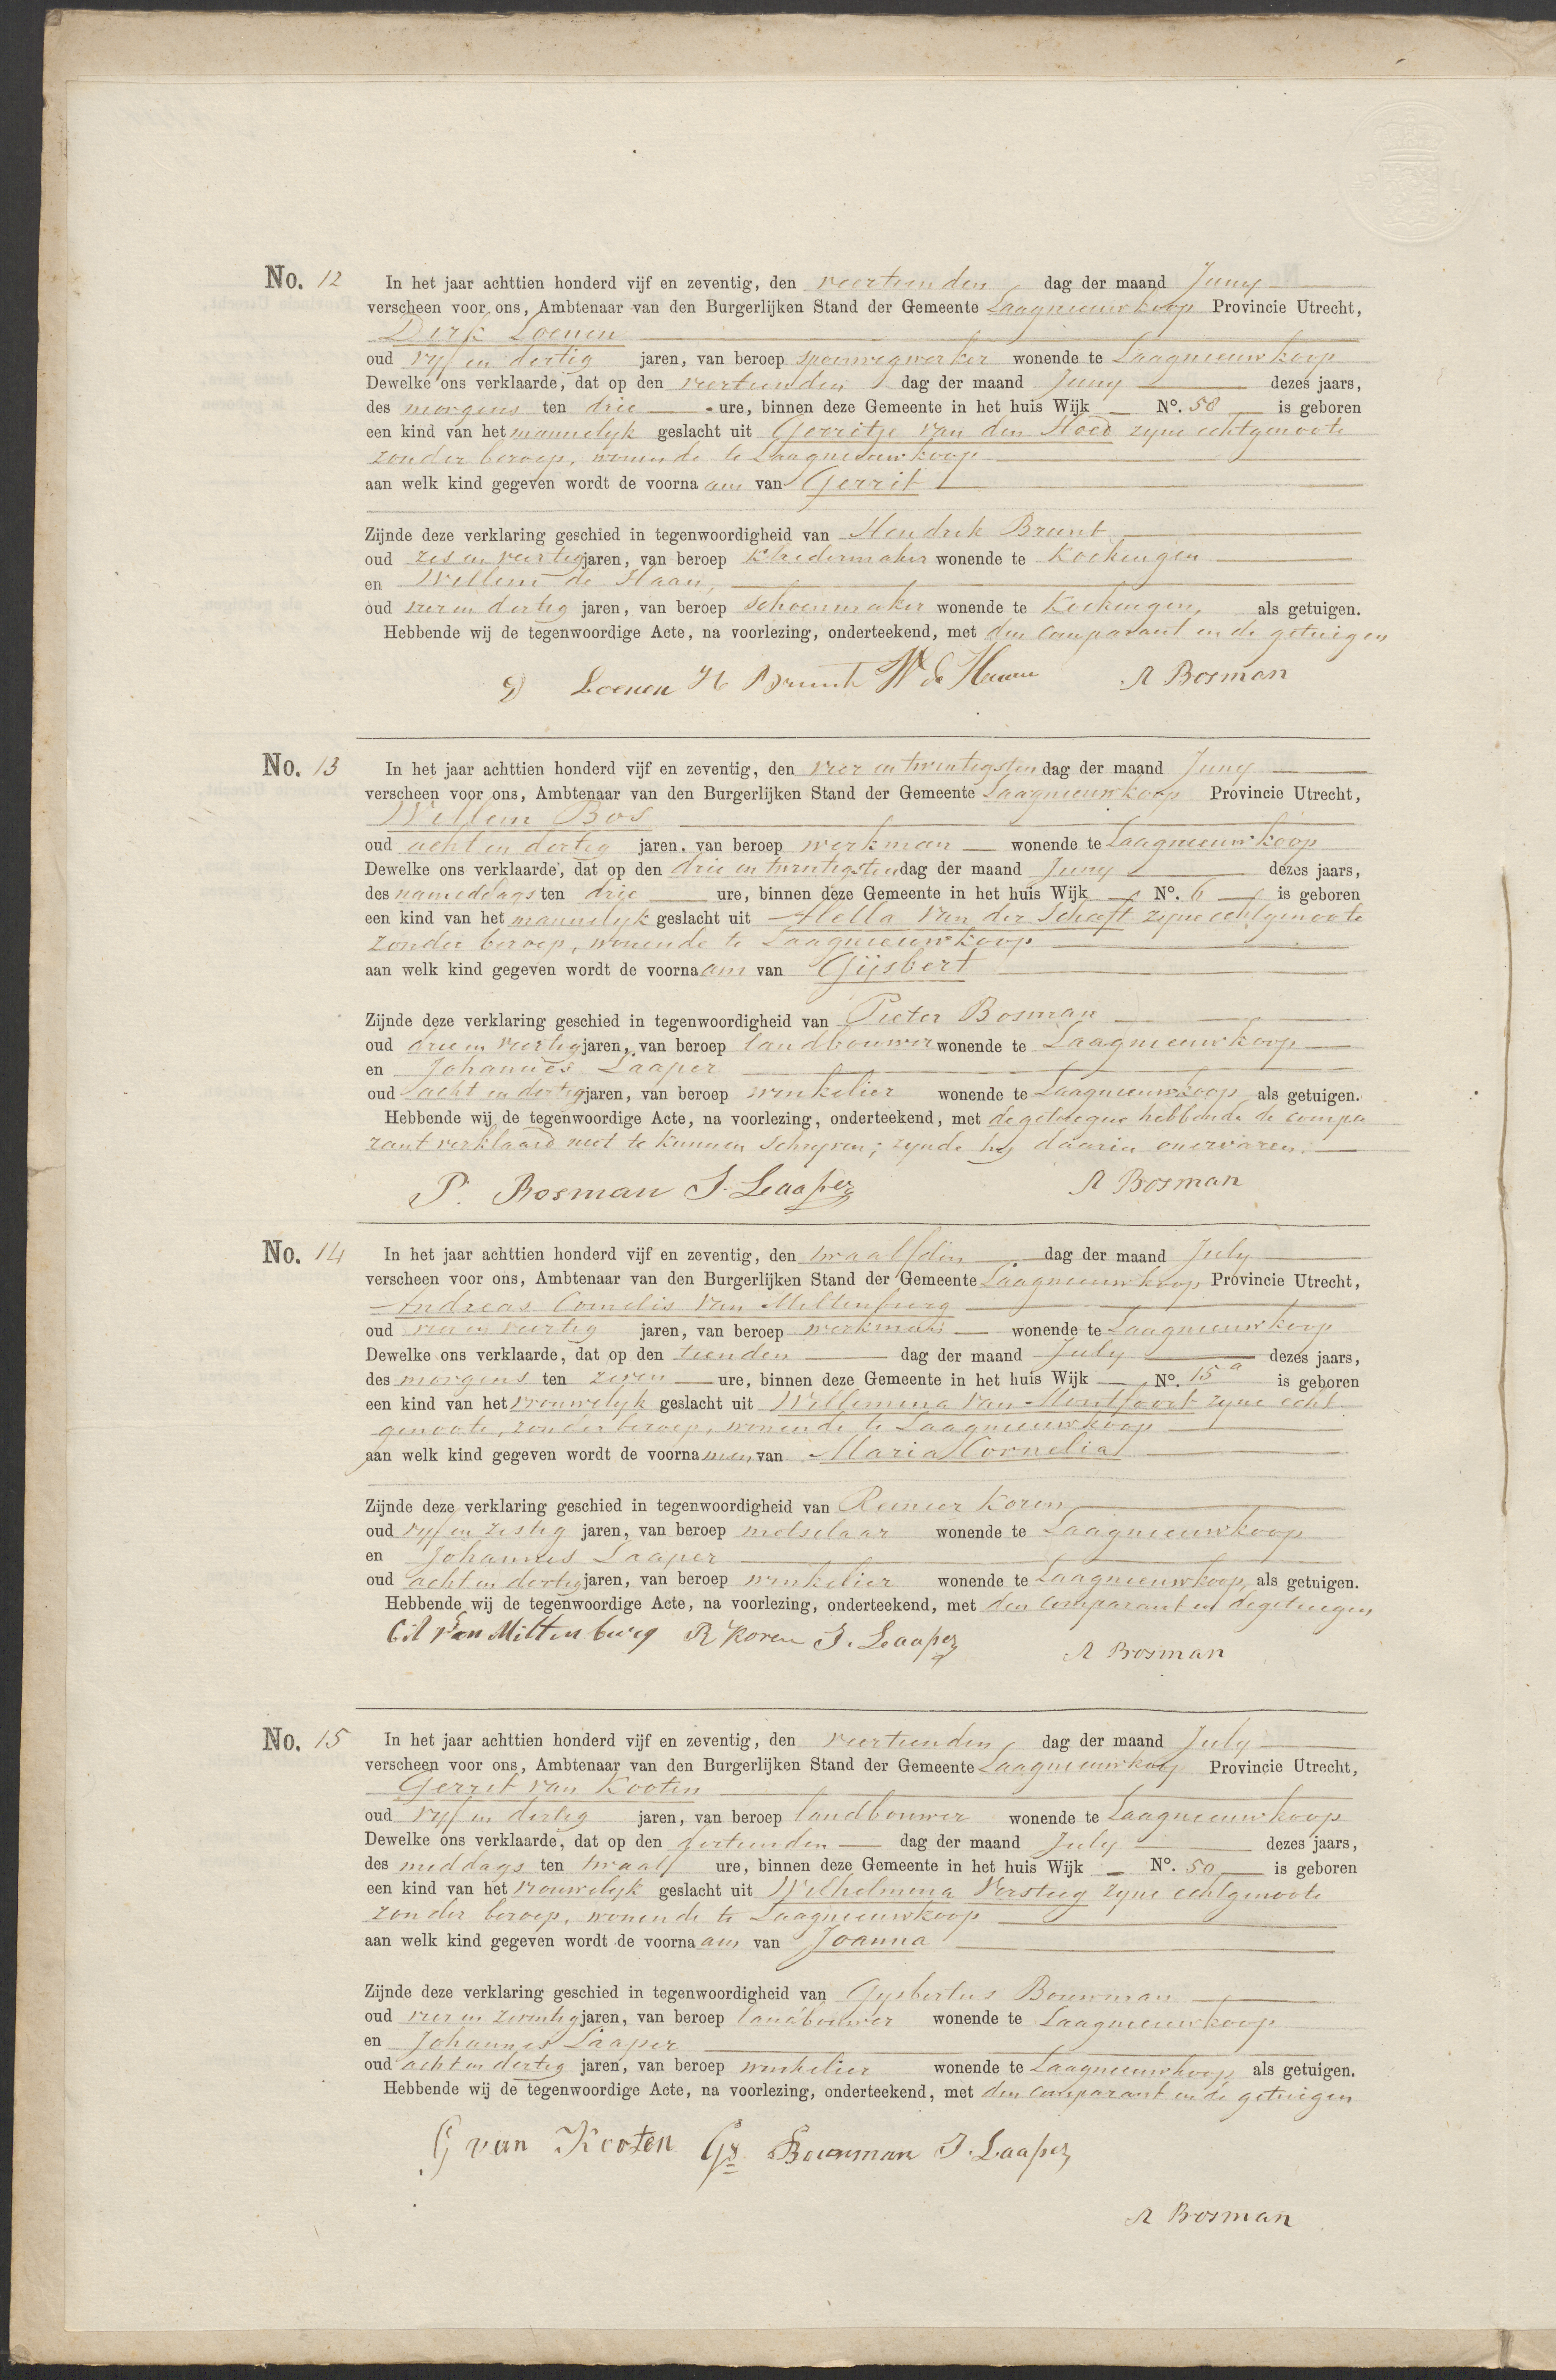 No. 12 In het jaar achttien honderd vijf en zeventig, den veertienden dag der maand Juny
verscheen voor ons, Ambtenaar van den Burgerlijken Stand der Gemeente Laagnieuwkoop Provincie Utrecht,
Dirk Loenen
oud vyf en dertig jaren, van beroep spoorwegwerker wonende te Laagnieuwkoop
Dewelke ons verklaarde, dat op den veertienden dag der maand Juny dezes jaars,
des morgens ten drie ure, binnen deze Gemeente in het huis Wijk No. 58 is geboren
een kind van het mannelyk geslacht uit Gerritje van den Hoed zyne echtgenoote
zonder beroep, wonende te Laagnieuwkoop
aan welk kind gegeven wordt de voornaam van Gerrit
Zijnde deze verklaring geschied in tegenwoordigheid van Hendrik Brunt
oud zes en veertig jaren, van beroep kleedermaker wonende te Kockengen
en Willem de Haan,
oud vier en dertig jaren, van beroep schoenmaker wonende te Kockengen, als getuigen.
Hebbende wij de tegenwoordige Acte, na voorlezing, onderteekend, met den comparant en de getuigen
D Loenen H Brunt W de Haan A Bosman
No. 13 In het jaar achttien honderd vijf en zeventig, den vier en twintigsten dag der maand Juny
verscheen voor ons, Ambtenaar van den Burgerlijken Stand der Gemeente Laagnieuwkoop Provincie Utrecht,
Willem Bos
oud acht en dertig jaren, van beroep werkman wonende te Laagnieuwkoop
Dewelke ons verklaarde, dat op den drie en twintigsten dag der maand Juny dezes jaars,
des namiddags ten drie ure, binnen deze Gemeente in het huis Wijk No. 6 is geboren
een kind van het mannelyk geslacht uit Mella van der Schaft zyne echtgenoote
zonder beroep, wonende te Laagnieuwkoop
aan welk kind gegeven wordt de voornaam van Gijsbert
Zijnde deze verklaring geschied in tegenwoordigheid van Pieter Bosman
oud drie en veertig jaren, van beroep landbouwer wonende te Laagnieuwkoop
en Johannes Laaper
oud acht en dertig jaren, van beroep winkelier wonende te Laagnieuwkoop als getuigen.
Hebbende wij de tegenwoordige Acte, na voorlezing, onderteekend, met de getuigen hebbende de compa
rant verklaard niet te kunnen schryven; zynde hy daarin onervaren.
P. Bosman J. Laaper A Bosman
No. 14 In het jaar achttien honderd vijf en zeventig, den twaalfden dag der maand July
verscheen voor ons, Ambtenaar van den Burgerlijken Stand der Gemeente Laagnieuwkoop Provincie Utrecht,
Andreas Cornelis van Miltenburg
oud vier en veertig jaren, van beroep werkman wonende te Laagnieuwkoop
Dewelke ons verklaarde, dat op den tienden dag der maand July dezes jaars,
des morgens ten zeven ure, binnen deze Gemeente in het huis Wijk No. 15a is geboren
een kind van het vrouwelyk geslacht uit Willemina van Montfoort zyne echt
genoote, zonder beroep, wonende te Laagnieuwkoop
aan welk kind gegeven wordt de voornamen van Maria Cornelia
Zijnde deze verklaring geschied in tegenwoordigheid van Reinier Koren
oud vyf en zestig jaren, van beroep metselaar wonende te Laagnieuwkoop
en Johannes Laaper
oud acht en dertig jaren, van beroep winkelier wonende te Laagnieuwkoop, als getuigen.
Hebbende wij de tegenwoordige Acte, na voorlezing, onderteekend, met den comparant en de getuigen
van Miltenburg R Koren J. Laaper A Bosman
No. 15 In het jaar achttien honderd vijf en zeventig, den veertienden dag der maand July
verscheen voor ons, Ambtenaar van den Burgerlijken Stand der Gemeente Laagnieuwkoop Provincie Utrecht,
Gerrit van Kooten
oud vyf en dertig jaren, van beroep landbouwer wonende te Laagnieuwkoop
Dewelke ons verklaarde, dat op den dertienden dag der maand July dezes jaars,
des middags ten twaalf ure, binnen deze Gemeente in het huis Wijk No. 50 is geboren
een kind van het vrouwelyk geslacht uit Wilhelmina Versteeg zyne echtgenoote
zonder beroep, wonende te Laagnieuwkoop
aan welk kind gegeven wordt de voornaam van Joanna
Zijnde deze verklaring geschied in tegenwoordigheid van Gysbertus Bouwman
oud vier en zeventig jaren, van beroep landbouwer wonende te Laagnieuwkoop
en Johannes Laaper
oud acht en dertig jaren, van beroep winkelier wonende te Laagnieuwkoop, als getuigen.
Hebbende wij de tegenwoordige Acte, na voorlezing, onderteekend, met den comparant en de getuigen
G van Kooten Gs Bouwman J. Laaper
A Bosman